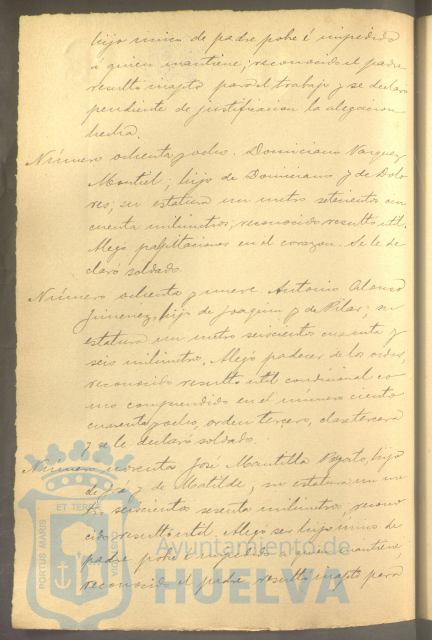 hijo unico de padre pobre é impedido
á quien mantiene; reconocido el padre
resultó inapto para el trabajo y se declaró
pendiente de justificacion la alegacion
hecha.
Número ochenta y ocho. Domiciano Vazquez
Montiel; hijo de Domiciano y de Dolo
res; su estatura un metro setecientos cin
cuenta milimetros; reconocido resultó util.
Alegó palpitaciones en el corazon. Se le de
claró soldado.
Número ochenta y nueve. Antonio Alonso
Jimenez, hijo de Joaquin y de Pilar; su
estatura un metro seiscientos cuenta y
seis milimetros. Alegó padecer de los oidos,
reconocido resultó util condicional co
mo comprendido en el número ciento
cincuenta y ocho, orden tercero, clase tercera
y se le declaró soldado.
Número noventa José Mantilla, hijo
de José y de Matilde; su estatura un me
seiscientos sesenta milimetros; recono
cido resultó util. Alegó ser hijo unico de
padre pobre é impedido á quien mantiene;
reconocido el padre resultó inapto para
PORTUS MARIS
ET TERRÆ
Ayuntamiento de
HUELVA